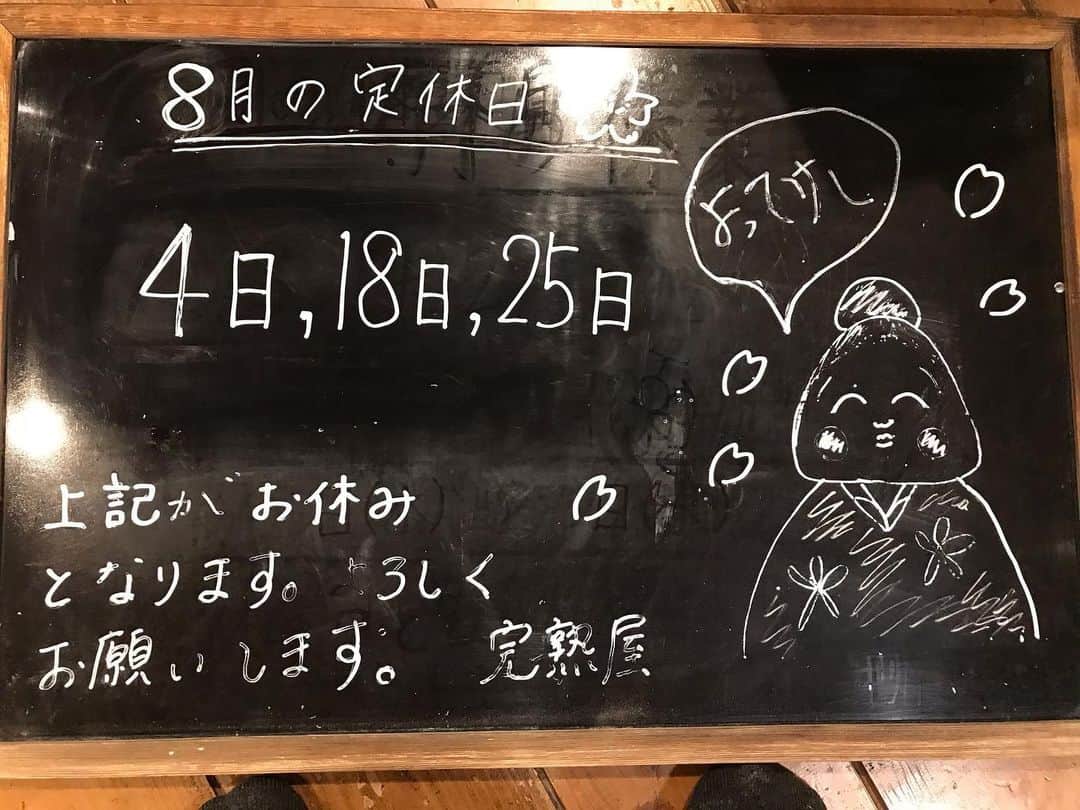 8月の定休日
よってけし
4日,18日,25日
上記がお休み
となります。よろしく
お願いします。 完熟屋